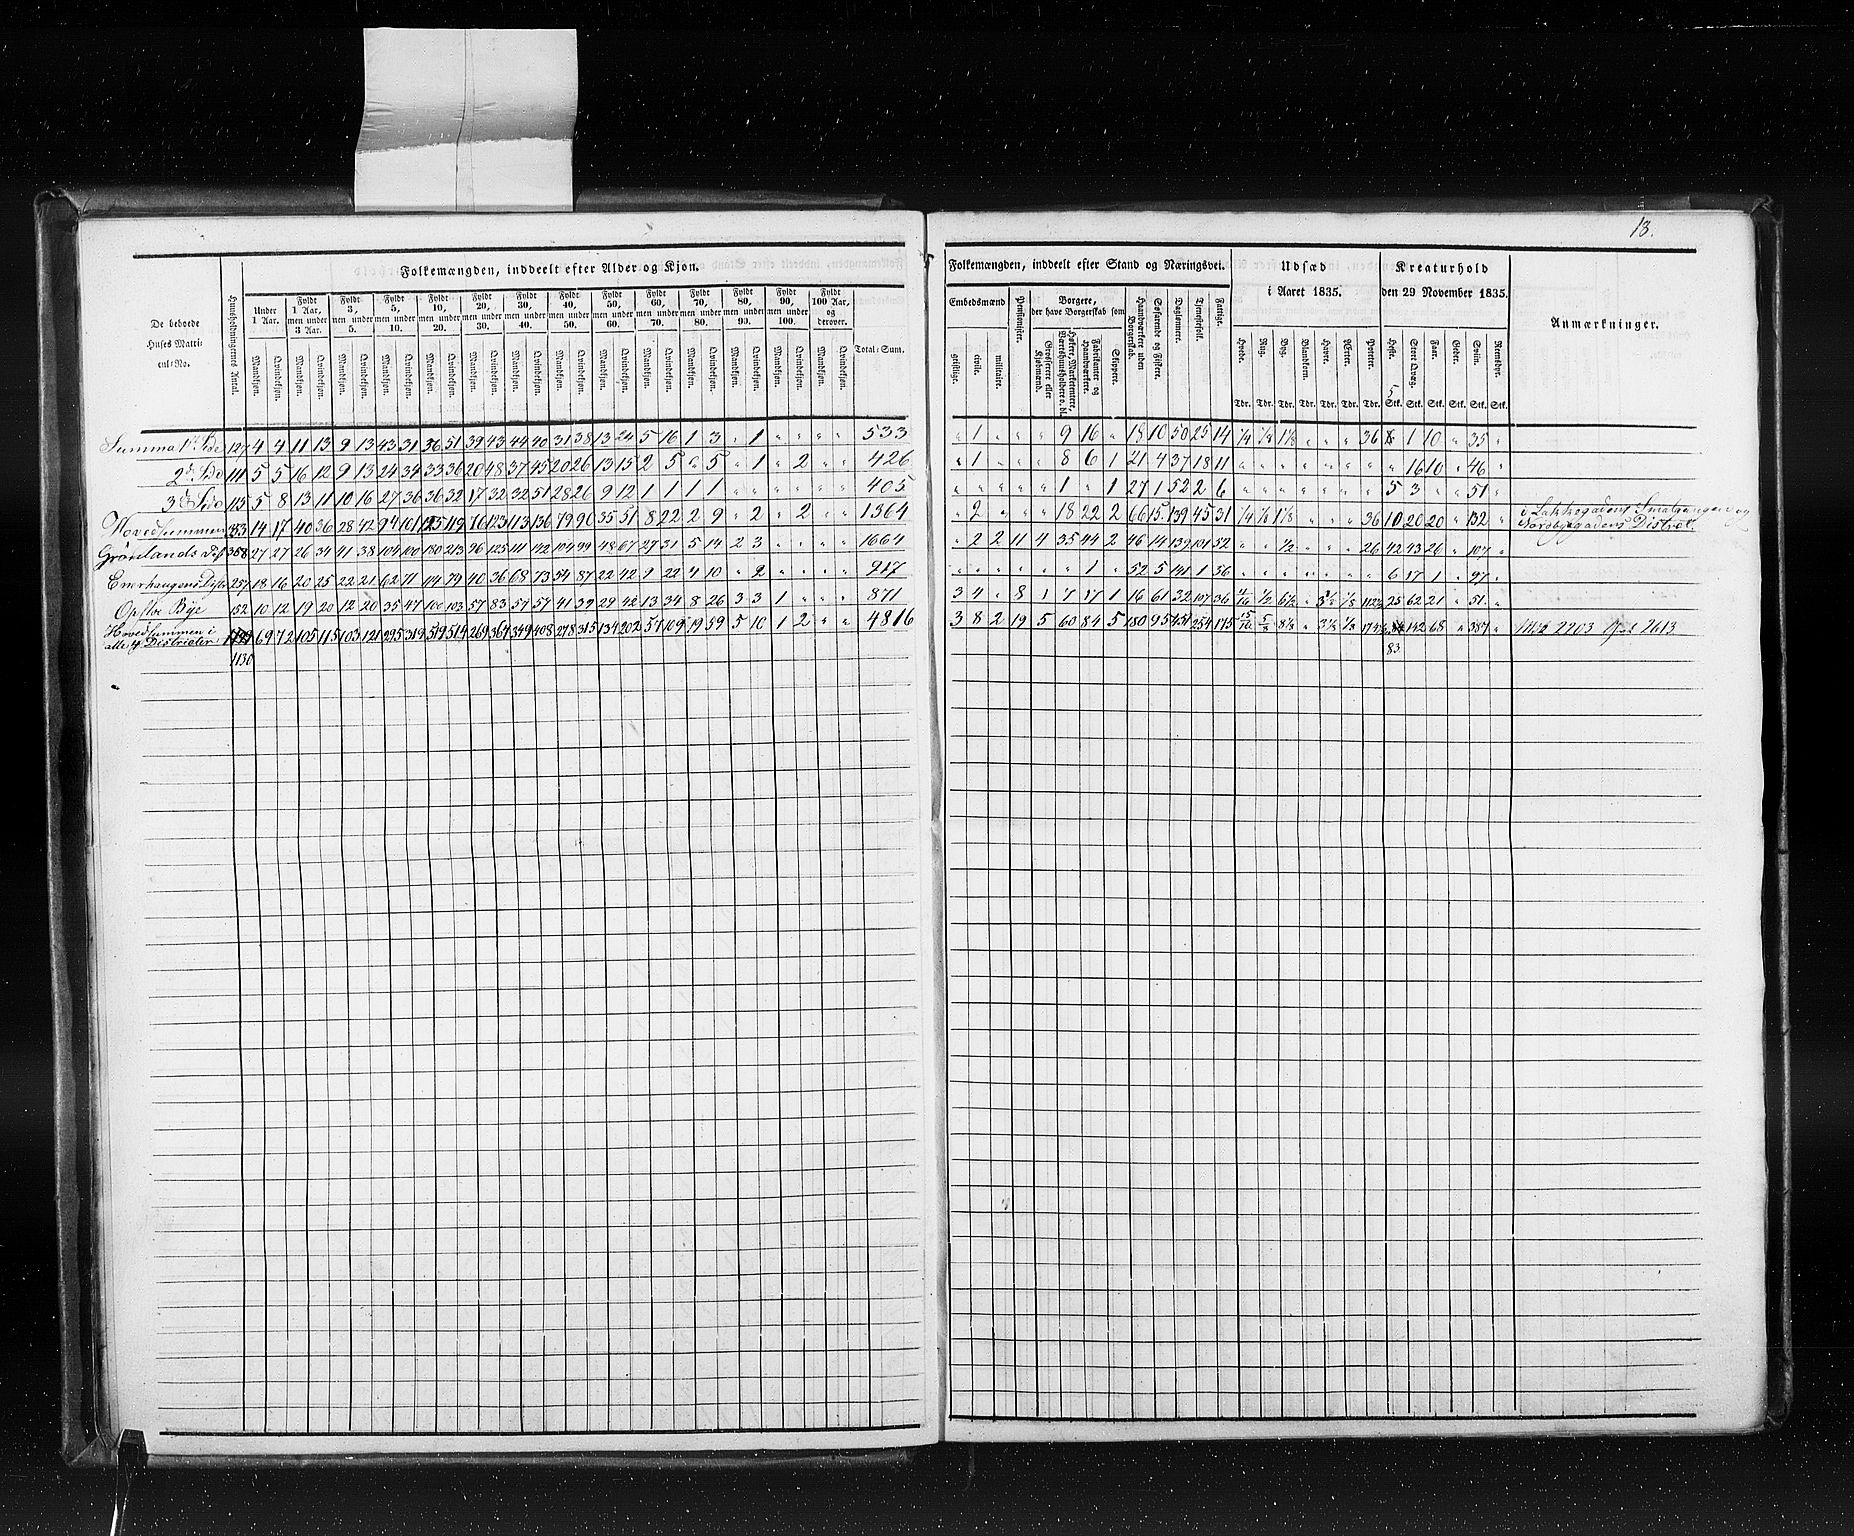 13.
Folkemængden, inddeelt efter Alder og Kjøn.
De beboede Huses Matricul-No.
Huusholdningernes Antal.
Under 1 Aar.
Fyldt 1 Aar, men under 3 Aar.
Fyldt 3, men under 5.
Fyldt 5, men under 10.
Fyldt 10, men under 20.
Fyldt 20, men under 30.
Fyldt 30, men under 40.
Fyldt 40, men under 50.
Fyldt 50, men under 60.
Fyldt 60, men under 70.
Fyldt 70, men under 80.
Fyldt 80, men under 90.
Fyldt 90, men under 100.
Fyldt 100 Aar, og derover.
Mandkjøn. Qvindekjøn.
Total-Sum.
Summa 1ste Side 127 4 4 11 13 9 13 43 31 36 51 39 43 44 40 31 38 13 24 5 16 1 3 " 1 " " " " 533
2d Side 111 5 5 16 12 9 13 24 34 33 36 20 48 37 45 20 26 13 15 2 5 " 5 " 1 " 2 " " 426
3d Side 115 5 8 13 11 10 16 27 36 36 32 17 32 32 51 28 26 9 12 1 1 1 1 " " " " " " 405
Hovedsummen 353 14 17 40 36 28 42 94 101 105 119 76 123 113 136 79 90 35 51 8 22 2 9 " 2 " 2 " " 1364
Grønlands Dist 368 27 27 26 34 41 38 104 100 180 213 96 125 111 142 104 99 48 67 27 31 5 14 2 3 " " " " 1664
Enerhaugens Distr 257 18 16 20 25 22 21 62 71 114 79 40 36 68 73 54 87 22 42 9 22 4 10 " 2 " " " " 917
Opsloe Bye 152 10 12 19 20 12 20 35 47 100 103 57 83 57 57 41 39 29 42 13 34 8 26 3 3 1 " " " 871
Hovedsummen i
alle 4 Districter 69 72 105 115 103 121 295 319 519 514 269 367 349 408 278 315 134 202 57 109 19 59 5 10 1 2 " " 4816
1130
Folkemængden, inddeelt efter Stand og Næringsvei.
Udsæd i Aaret 1835.
Kreaturhold den 29 November 1835.
Anmærkninger.
Embedsmænd
geistlige. civile. militaire.
Pensionister.
Borgere, der have Borgerskab som
Grosserer eller Kjøbmænd.
Høkere, Marketentere, Værtshuusholdere o. dl.
Fabrikanter og Haandværkere.
Skippere.
Haandværkere uden Borgerskab.
Søfarende og Fiskere.
Daglønnere.
Tjenestefolk.
Fattige.
Hvede. Rug. Byg. Blandkorn. Havre. Ærter. Poteter.
Tdr. Tdr. Tdr. Tdr. Tdr. Tdr. Tdr.
Heste. Stort Qvæg. Faar. Geder. Sviin. Rensdyr.
Stk. Stk. Stk. Stk. Stk. Stk.
5
" 1 " " " 9 16 " 18 10 50 25 14 1/4 1/8 1 1/8 " " " 36 1 10 " 35 "
" 1 " " " 8 6 1 21 4 37 18 11 " " " " " " " " 16 10 " 46 "
" " " " " 1 " 1 27 1 52 2 6 " " " " " " " 5 3 " " 51 "
" 2 " " " 18 22 2 66 15 139 45 31 1/4 1/8 1 1/8 " " " 36 10 20 20 " 132 " i Lakkegadens Smalgangen og
Vordbyegadens District.
" 2 2 11 4 35 44 2 46 14 139 101 52 " " 1/2 " " " 26 42 43 26 " 107 "
" " " " " " 1 " 52 5 141 1 36 " " " " " " " 6 17 1 " 97 "
3 4 " 8 1 7 17 1 16 61 32 107 36 1/2 6 1/2 " 3 1/2 1/8 112 1/2 25 62 21 " 51 "
3 8 2 19 5 60 84 5 180 95 451 254 175 5/8 8 1/8 " 3 1/2 1/8 174 1/2 142 68 " 387 " Mk 2203 Qk 2613
83